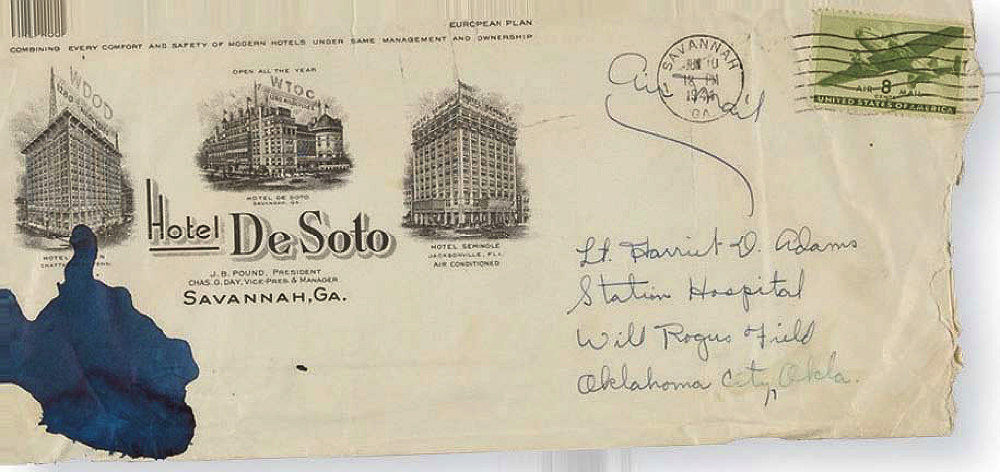 EUROPEAN PLAN
COMBINING EVERY COMFORT AND SAFETY OF MODERN HOTELS UNDER SAME MANAGEMENT AND OWNERSHIP
OPEN ALL THE YEAR
WDOD
WTOC
HOTEL DE SOTO
SAVANNAH, GA.
HOTEL SEMINOLE
JACKSONVILLE, FLA.
AIR CONDITIONED
HOTEL
Hotel De Soto
J. B. POUND, PRESIDENT
CHAS. G. DAY, VICE-PRES. & MANAGER
SAVANNAH, GA.
SAVANNAH
JUN 10
GA.
Air Mail
AIR 8 MAIL
CENTS
UNITED STATES OF AMERICA
Lt. Harriet D. Adams
Station Hospital
Will Rogers Field
Oklahoma City, Okla.